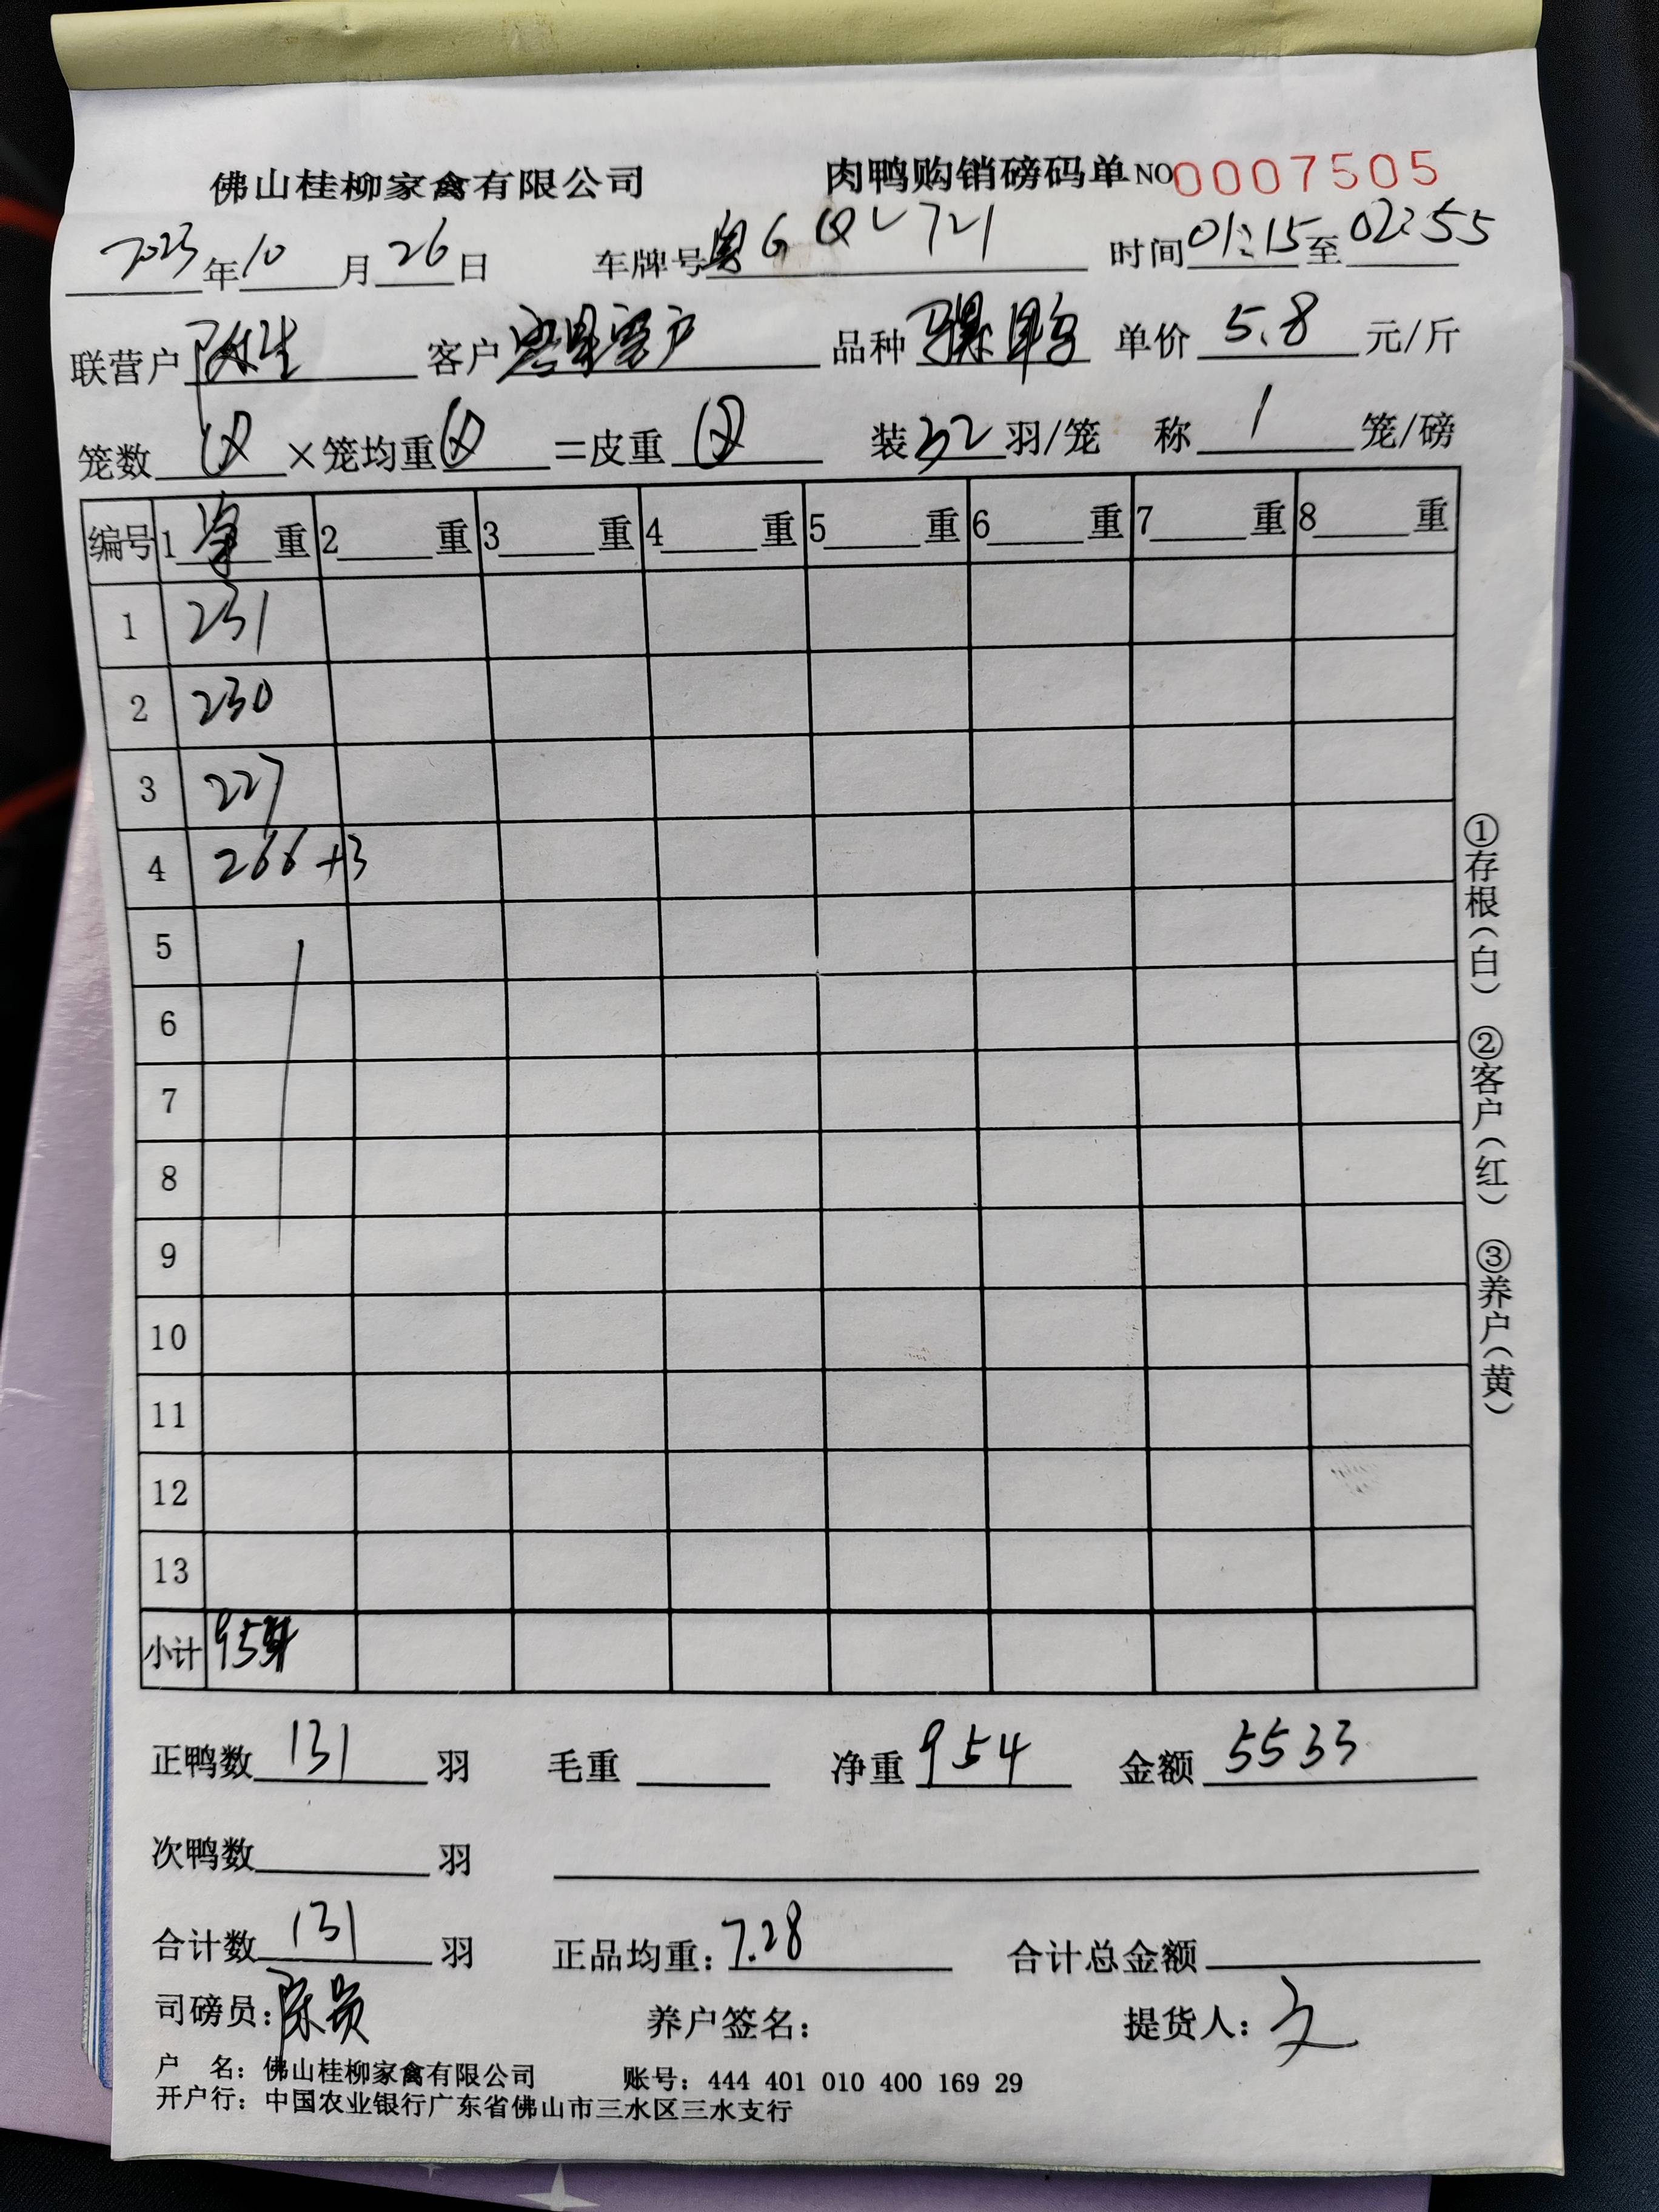 佛山桂柳家禽有限公司 肉鸭购销磅码单 NO 0007505
2023年10月26日 车牌号粤G 时间01:15至02:55
联营户 陈生 客户 客户 品种 单价 5.8 元/斤
笼数 ×笼均重 =皮重 装32羽/笼 称 1 笼/磅
编号 1 净 重 2 重 3 重 4 重 5 重 6 重 7 重 8 重
1 231
2 230
3 227
4 266+3
5
6
7
8
9
10
11
12
13
小计 954
正鸭数 131 羽 毛重 净重 954 金额 5533
次鸭数 羽
合计数 131 羽 正品均重:7.28 合计总金额
司磅员:陈 养户签名: 提货人:文
户 名:佛山桂柳家禽有限公司 账号:444 401 010 400 169 29
开户行:中国农业银行广东省佛山市三水区三水支行
①存根(白) ②客户(红) ③养户(黄)